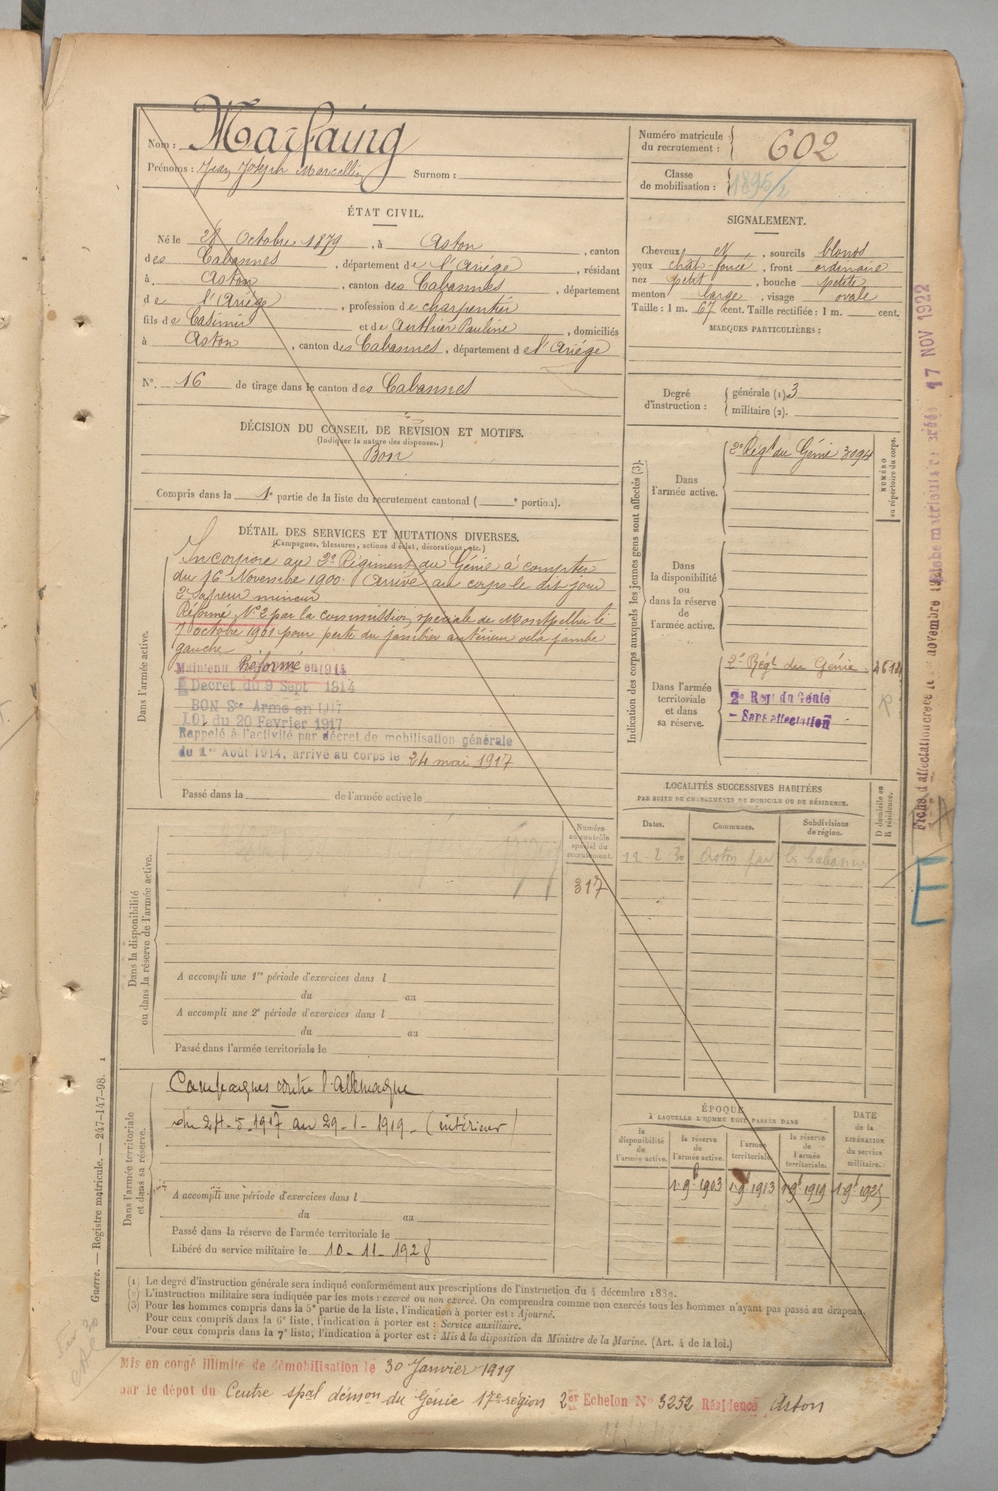 Nom : Marfaing
Prénoms : Jean Joseph Marcellin Surnom :
Numéro matricule du recrutement : 602
Classe de mobilisation : 1895/2
ÉTAT CIVIL.
Né le 28 Octobre 1879, à Aston, canton
des Cabannes, département de l'Ariège, résidant
à Aston, canton des Cabannes, département
de l'Ariège, profession de charpentier
fils de Casimir et de Authier Pauline, domiciliés
à Aston, canton des Cabannes, département de l'Ariège
N°. 16 de tirage dans le canton des Cabannes
SIGNALEMENT.
Cheveux N, sourcils blonds
yeux chât-foncé, front ordinaire
nez petit, bouche petite
menton large, visage ovale
Taille : 1 m. 67 cent. Taille rectifiée : 1 m. cent.
MARQUES PARTICULIÈRES :
Degré d'instruction : générale (1) 3
militaire (2).
DÉCISION DU CONSEIL DE RÉVISION ET MOTIFS.
(Indiquer la nature des dispenses.)
Bon
Compris dans la 1e partie de la liste du recrutement cantonal ( e portion).
DÉTAIL DES SERVICES ET MUTATIONS DIVERSES.
(Campagnes, blessures, actions d'éclat, décorations, etc.)
Dans l'armée active.
Incorporé au 2e Régiment du Génie à compter
du 16 Novembre 1900. Arrivé au corps le dit jour
2e Sapeur mineur
Réformé N°2 par la commission spéciale de Montpellier le
7 octobre 1901 pour perte du jambe
gauche
Maintenu Réformé en 1914
Décret du 9 Sept 1914
BON Sce Armé en 1917
LOI du 20 Février 1917
Rappelé à l'activité par décret de mobilisation générale
du 1er Août 1914, arrivé au corps le 24 mai 1917
Passé dans la de l'armée active le
Indication des corps auxquels les jeunes gens sont affectés (3).
NUMÉRO au répertoire du corps.
Dans l'armée active.
2e Régt du Génie 3094
Dans la disponibilité ou dans la réserve de l'armée active.
Dans l'armée territoriale et dans sa réserve.
2e Régt du Génie
2e Regt du Génie
- Sans affectation
LOCALITÉS SUCCESSIVES HABITÉES
PAR SUITE DE CHANGEMENTS DE DOMICILE OU DE RÉSIDENCE.
Dates. Communes. Subdivisions de région. D domicile ou R résidence.
12-2-30 Aston par les Cabannes
Dans la disponibilité ou dans la réserve de l'armée active.
Numéro au contrôle spécial du recrutement.
317
A accompli une 1re période d'exercices dans l
du au
A accompli une 2e période d'exercices dans l
du au
Passé dans l'armée territoriale le
Dans l'armée territoriale et dans sa réserve.
Campagnes contre l'Allemagne
du 24-5-1917 au 29-1-1919- (intérieur)
A accompli une période d'exercices dans l
du au
Passé dans la réserve de l'armée territoriale le
Libéré du service militaire le 10-11-1928
ÉPOQUE
À LAQUELLE L'HOMME DOIT PASSER DANS
la disponibilité de l'armée active.
la réserve de l'armée active.
l'armée territoriale.
la réserve de l'armée territoriale.
DATE de la LIBÉRATION du service militaire.
1-9bre 1903 1-9bre 1913 1-9bre 1919 1-9bre 1925
(1) Le degré d'instruction générale sera indiqué conformément aux prescriptions de l'instruction du 4 décembre 1889.
(2) L'instruction militaire sera indiquée par les mots : exercé ou non exercé. On comprendra comme non exercés tous les hommes n'ayant pas passé au drapeau.
(3) Pour les hommes compris dans la 5e partie de la liste, l'indication à porter est : Ajourné.
Pour ceux compris dans la 6e liste, l'indication à porter est : Service auxiliaire.
Pour ceux compris dans la 7e liste, l'indication à porter est : Mis à la disposition du Ministre de la Marine. (Art. 4 de la loi.)
Mis en congé illimité de démobilisation le 30 Janvier 1919
par le dépôt du Centre spal démon du Génie 17e région 2er Echelon No 3252 Résidence Aston
Guerre. — Registre matricule. — 247-147-98.
17 NOV 1922
E